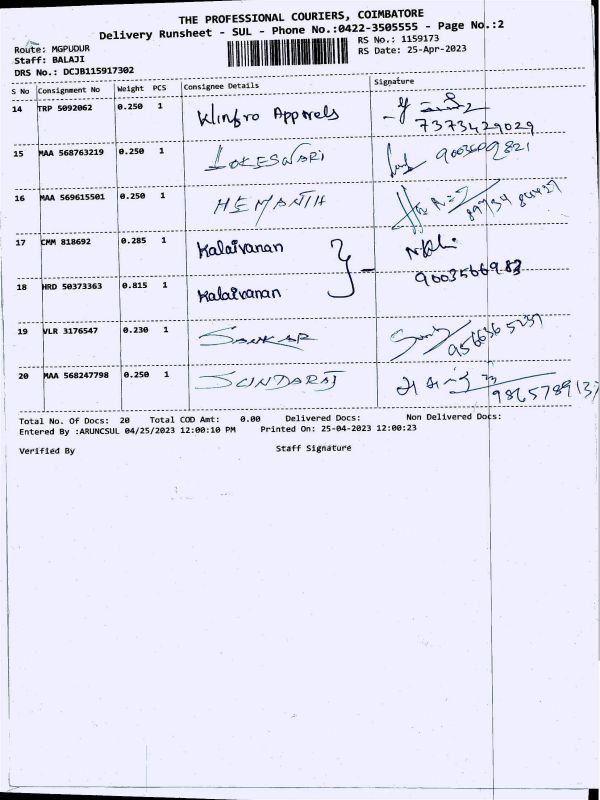 THE PROFESSIONAL COURIERS, COIMBATORE
Delivery Runsheet - SUL - Phone No.:0422-3505555 - Page No.:2
Route: MGPUDUR
RS No.: 1159173
Staff: BALAJI
RS Date: 25-Apr-2023
DRS No.: DCJB115917302
S No Consignment No Weight PCS Consignee Details Signature
14 TRP 5092062 0.250 1 Klinfro Apprels
7373429029
15 MAA 568763219 0.250 1 LOKESWARI 9003609821
16 MAA 569615501 0.250 1 HEMANTH
17 CMM 818692 0.285 1 Kalaivanan
9003566983
18 HRD 50373363 0.815 1 Kalaivanan
19 VLR 3176547 0.230 1 SANKAR 9566365237
20 MAA 568247798 0.250 1 SUNDARAJ
9865789137
Total No. Of Docs: 20 Total COD Amt: 0.00 Delivered Docs: Non Delivered Docs:
Entered By :ARUNCSUL 04/25/2023 12:00:10 PM Printed On: 25-04-2023 12:00:23
Verified By Staff Signature